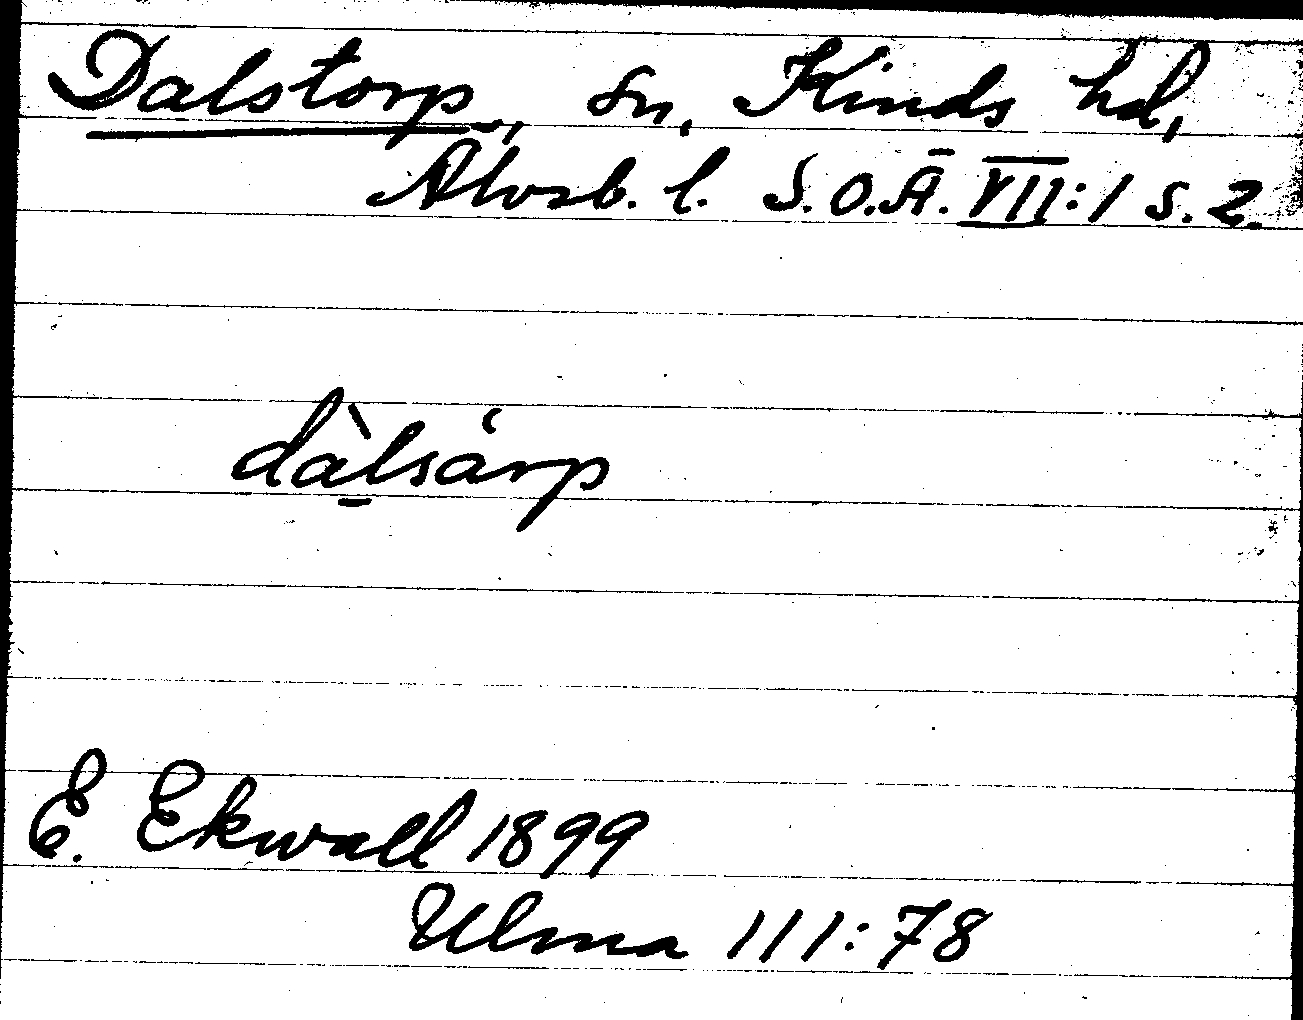 Dalstorp, sn, Kinds hd,
Älvsb. l. S.O.Ä. VII:1 s. 2.
dàl̠sårp
E. Ekwall 1899
Ulma 111:78